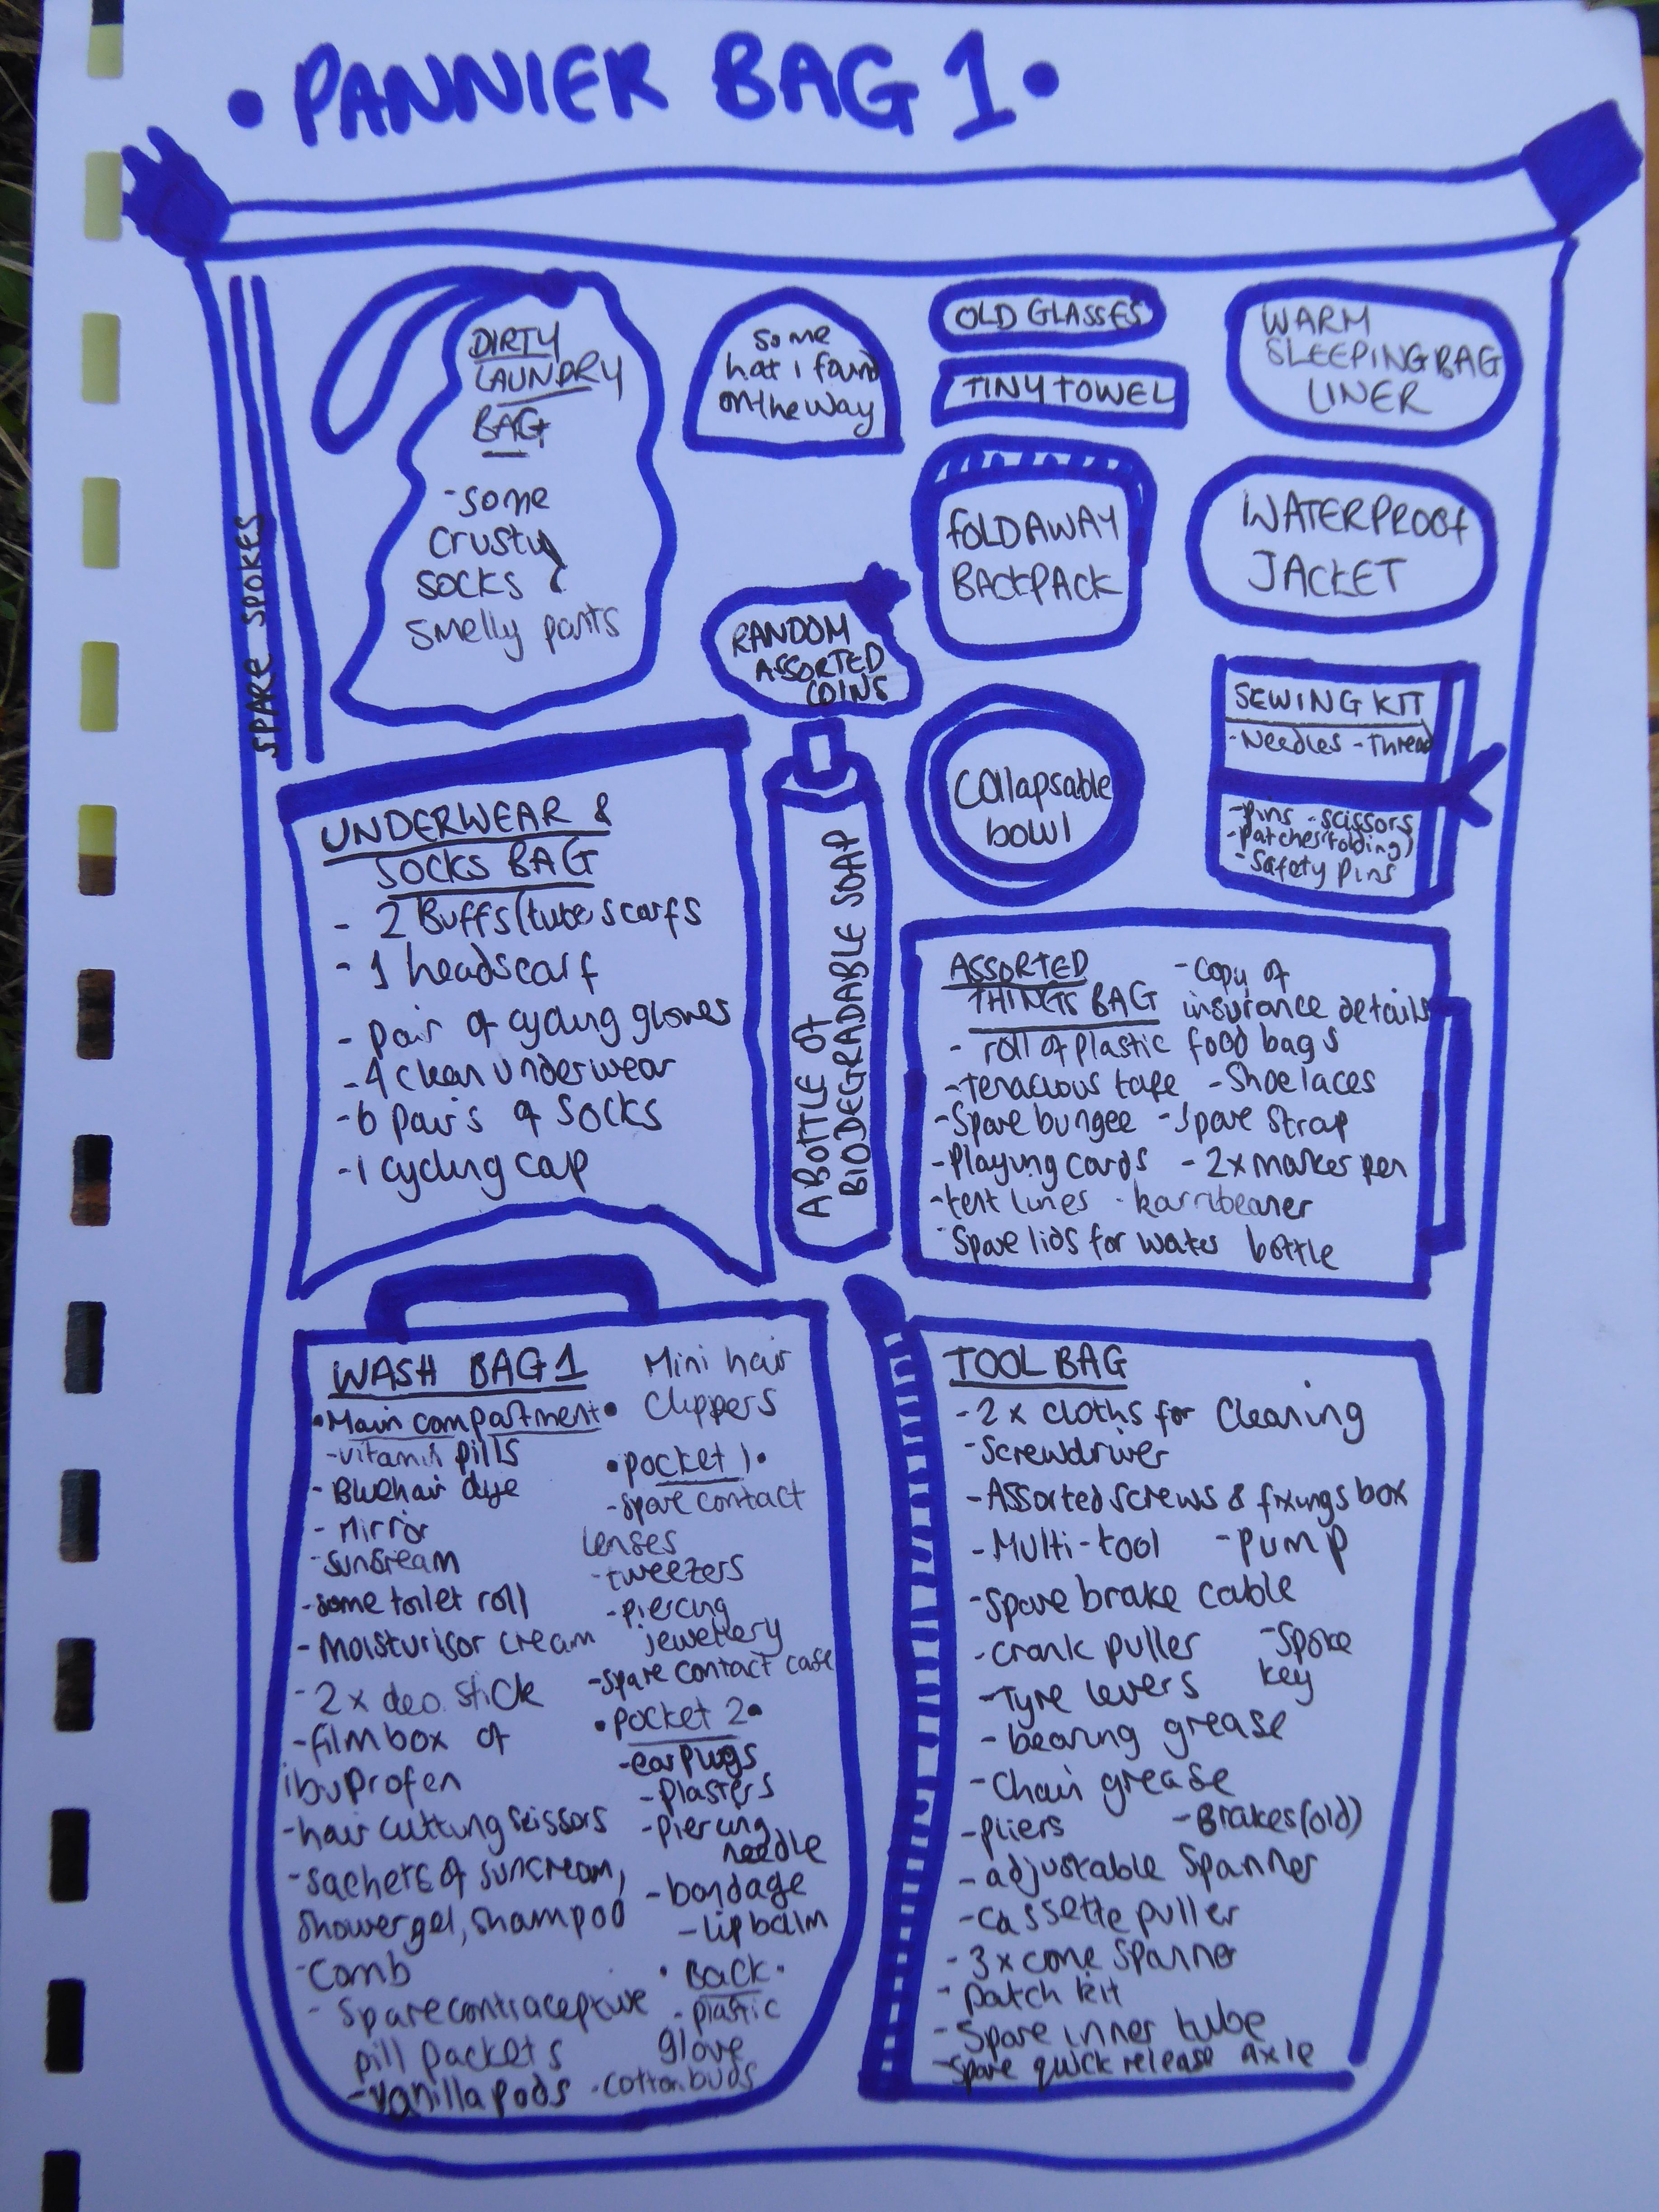 • PANNIER BAG 1 •
SPARE SPOKES
DIRTY
LAUNDRY
BAG
- some
crusty
socks &
smelly pants
some
hat i found
on the way
OLD GLASSES
TINY TOWEL
WARM
SLEEPING BAG
LINER
FOLDAWAY
BACKPACK
WATERPROOF
JACKET
RANDOM
ASSORTED
COINS
SEWING KIT
- Needles - Thread
- Pins - scissors
- patches (folding)
- Safety Pins
Collapsable
bowl
UNDERWEAR &
SOCKS BAG
- 2 Buffs (tube scarfs
- 1 headscarf
- pair of cycling gloves
- 4 clean underwear
- 6 pairs of socks
- 1 cycling cap
A BOTTLE OF
BIODEGRADABLE SOAP
ASSORTED
THINGS BAG
- Copy of
insurance details
- roll of plastic food bags
- Tenacious tape - Shoelaces
- Spare bungee - Spare strap
- Playing cards - 2x marker pen
- tent lines - karribeaner
- Spare lids for water bottle
WASH BAG 1
• Main compartment •
- vitamin pills
- Blue hair dye
- Mirror
- suncream
- some toilet roll
- Moisturisor cream
- 2 x deo. stick
- film box of
ibuprofen
- hair cutting scissors
- sachets of suncream,
showergel, shampoo
- Comb
- Spare contraceptive
pill packets
- vanilla pods
Mini hair
Clippers
• pocket 1 •
- spare contact
lenses
- tweezers
- piercing
jewellery
- spare contact case
• pocket 2 •
- earplugs
- plasters
- piercing
needle
- bandage
- lip balm
• Back •
- plastic
glove
- cotton buds
TOOL BAG
- 2 x cloths for Cleaning
- Screwdriver
- Assorted screws & fixings box
- Multi-tool - pump
- Spare brake cable
- crank puller - Spoke
key
- Tyre levers
- bearing grease
- Chain grease
- pliers - Brakes (old)
- adjustable Spanner
- cassette puller
- 3 x cone Spanner
- patch kit
- Spare inner tube
- Spare quick release axle